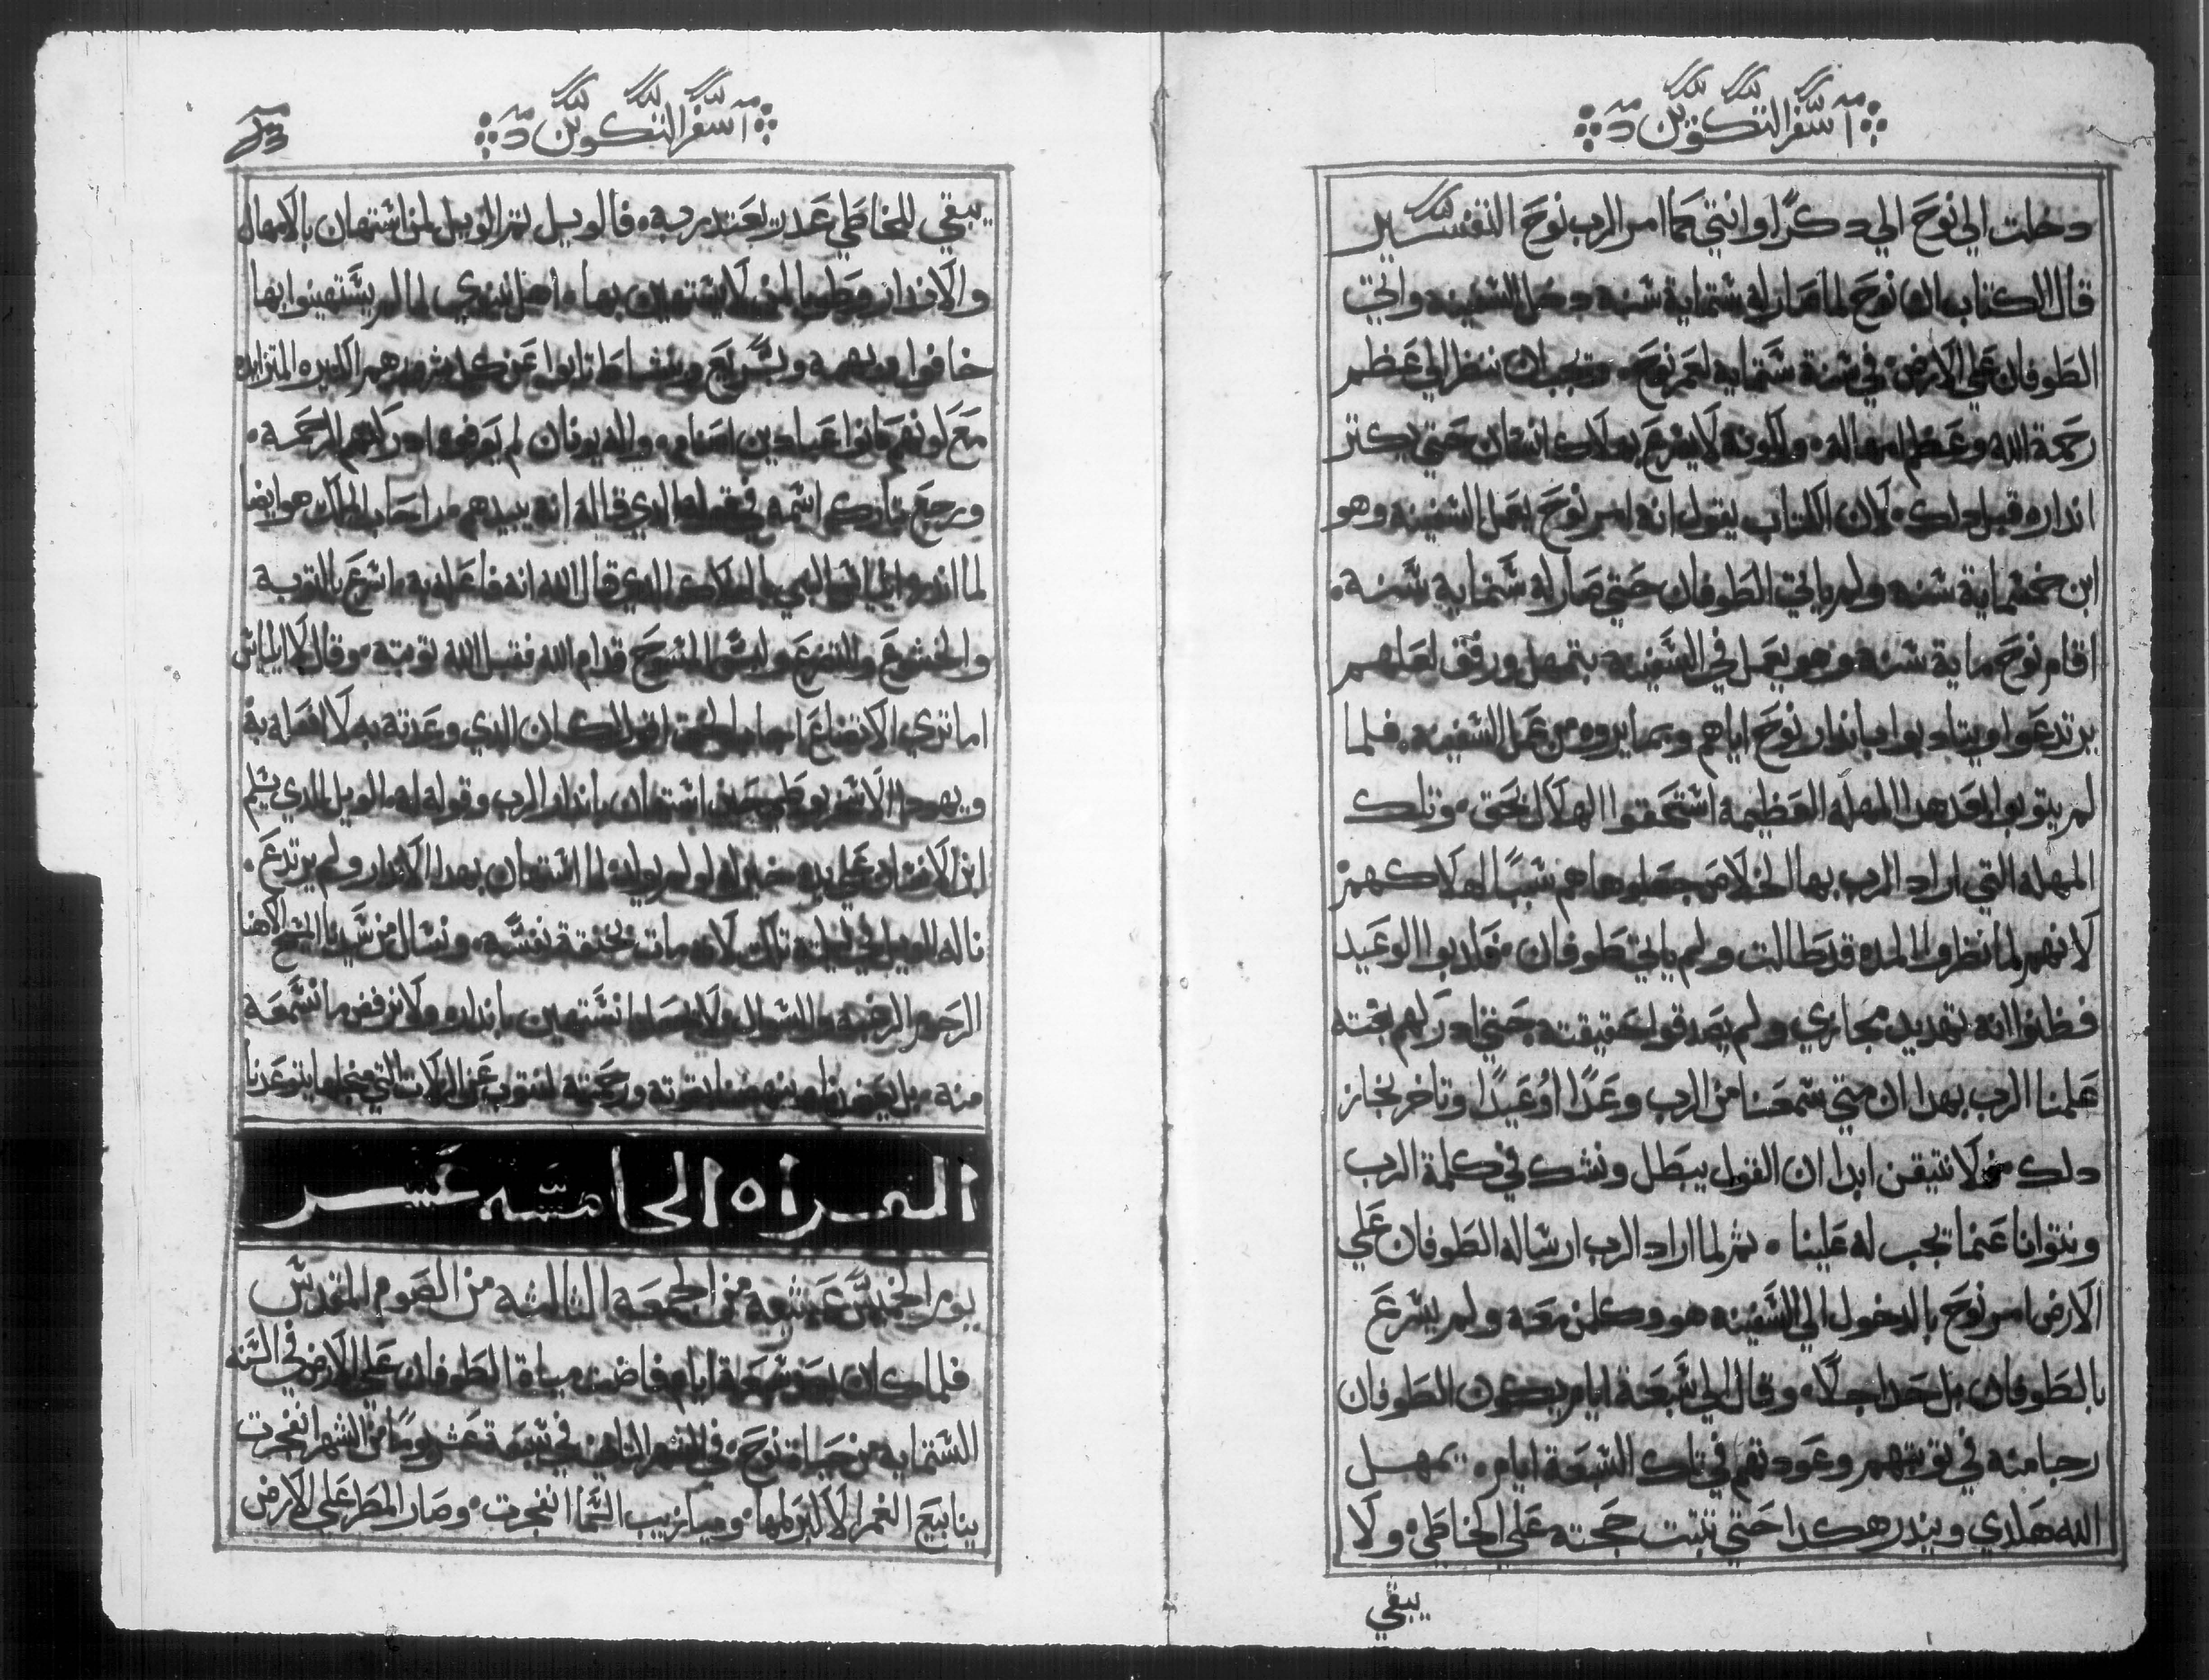 سفر التكوين
دخلت الي نوح الي دكرًا وانتي كما امر الرب نوح التفسير
قال الكتاب ان نوح لما صار له ستماية سنه دخل السفينه واتي
الطوفان علي الارض في سنة ستماية لعمر نوح، ويجب ان ننظر الي عظم
رحمة الله وعظم امهاله، ولكونه لا يسرع بهلاك انسان حتي يكتر
انداره قبل دلك، لان الكتاب يقول انه امر نوح بعمل السفينه وهو
ابن خمسماية سنه ولم ياتي الطوفان حتي صار له ستماية سنه،
اقام نوح ماية سنه وهو يعمل في السفينه بتمهل ورفق لعلهم
يرتدعوا ويتادبوا بانذار نوح اياهم وبما يروه من عمل السفينه، فلما
لم يتوبوا بعد هدا المهله العظيمة استحقوا الهلاك بحق، وتلك
المهله التي اراد الرب بها الخلاص جعلوها هم سببًا لهلاكهم
لانهم لما نظروا المده قد طالت ولم ياتي طوفان، فكدبوا الوعيد
فظنوا انه تهديد مجازي ولم يصدقوا حقيقته حتي ادركهم بغته
علمنا الرب بهدا ان متي سمعنا من الرب وعدًا او وعيدًا وتاخر نجاز
دلك لا نتيقن ابدا ان القول يبطل ونشك في كلمة الرب
ونتوانا عنما يجب له علينا، ثم لما اراد الرب ارساله الطوفان علي
الارض امر نوح بالدخول الي السفينه هو وكلمن معه ولم يسرع
بالطوفان بل حد اجلًا، وقال الي سبعة ايام يكون الطوفان
رجا منه في توبتهم وعودتهم في تلك السبعة ايام، يمهل
الله هكدي ويندر هكدا حتي تبت حجته علي الخاطي، ولا
يبقي
سفر التكوين
يبقي للخاطي عدر يعتدر به، فالويل تم الويل لمن استهان بالامهال
والاندار وطوبا لمن لا يستهين بها، اهل نينوي لما لم يستهينوا بها
خافوا
مع لونهم كانوا عبادين اصنام، والله لم ادركتهم الرحمة،
ورجع قاله انه يبيدهم هو ايضا
لما الدي قال الله انه فاعله به، اسرع بالتوبة
والخشوع والتضرع ولبس المسوح قدام الله فقبل الله توبته، وقال لايلياس
اما تري الدي وعدته به لا افعله به
ويهودا استهان بانذار الرب وقوله له، الويل للدي يسلم
ابن الانسان علي يديه خير له لو لم يولد لما استهان بهدا الاندار ولم يرتدع،
ناله الويل في ليلته تلك لانه مات بخنقة نفسه، ونسال من سيدنا المسيح الاهنا
الرحوم ولا نرفض ما نسمعه
منه، بل بقوته ورحمته لنتوب عن الزلات التي من اجلها يتوعدنا
القراه الخامسه عشر
يوم الخميس عشية من الجمعه التالته من الصوم المقدس
فلما كان بعد سبعة ايام فاضت مياة الطوفان علي الارض في السنه
الستمايه من حياة نوح، في الشهر التاني في سبعة عشر يومًا من الشهر انفجرت
ينابيع الغمر الاكبر كلها، وميازيب السما انفجرت، وصار المطر علي الارض